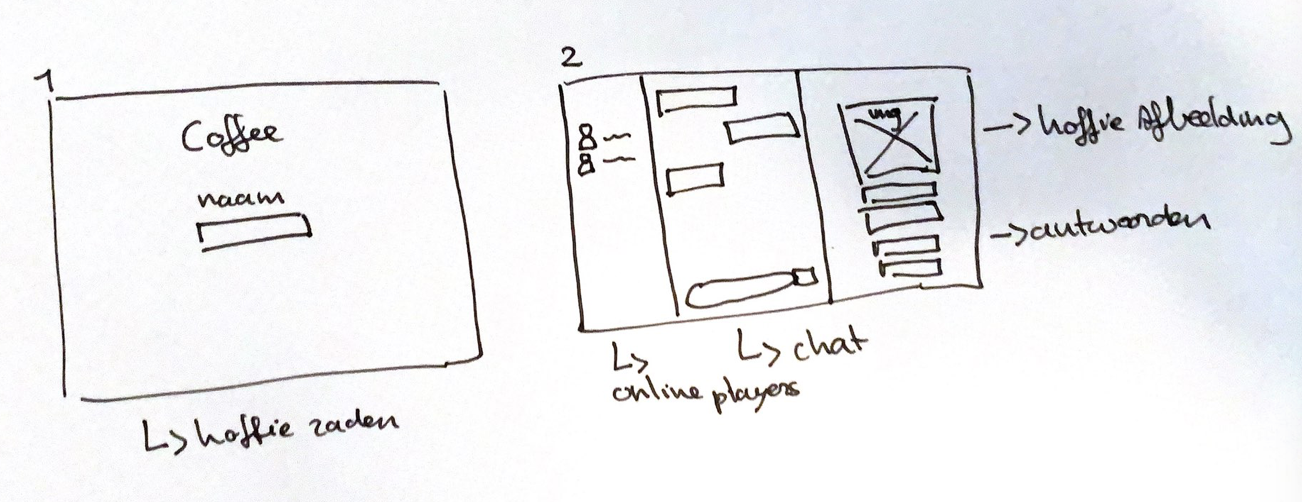 1
Coffee
naam
↳ koffie raden
2
img
→ koffie Afbeelding
→ antwoorden
↳ chat
↳
online players